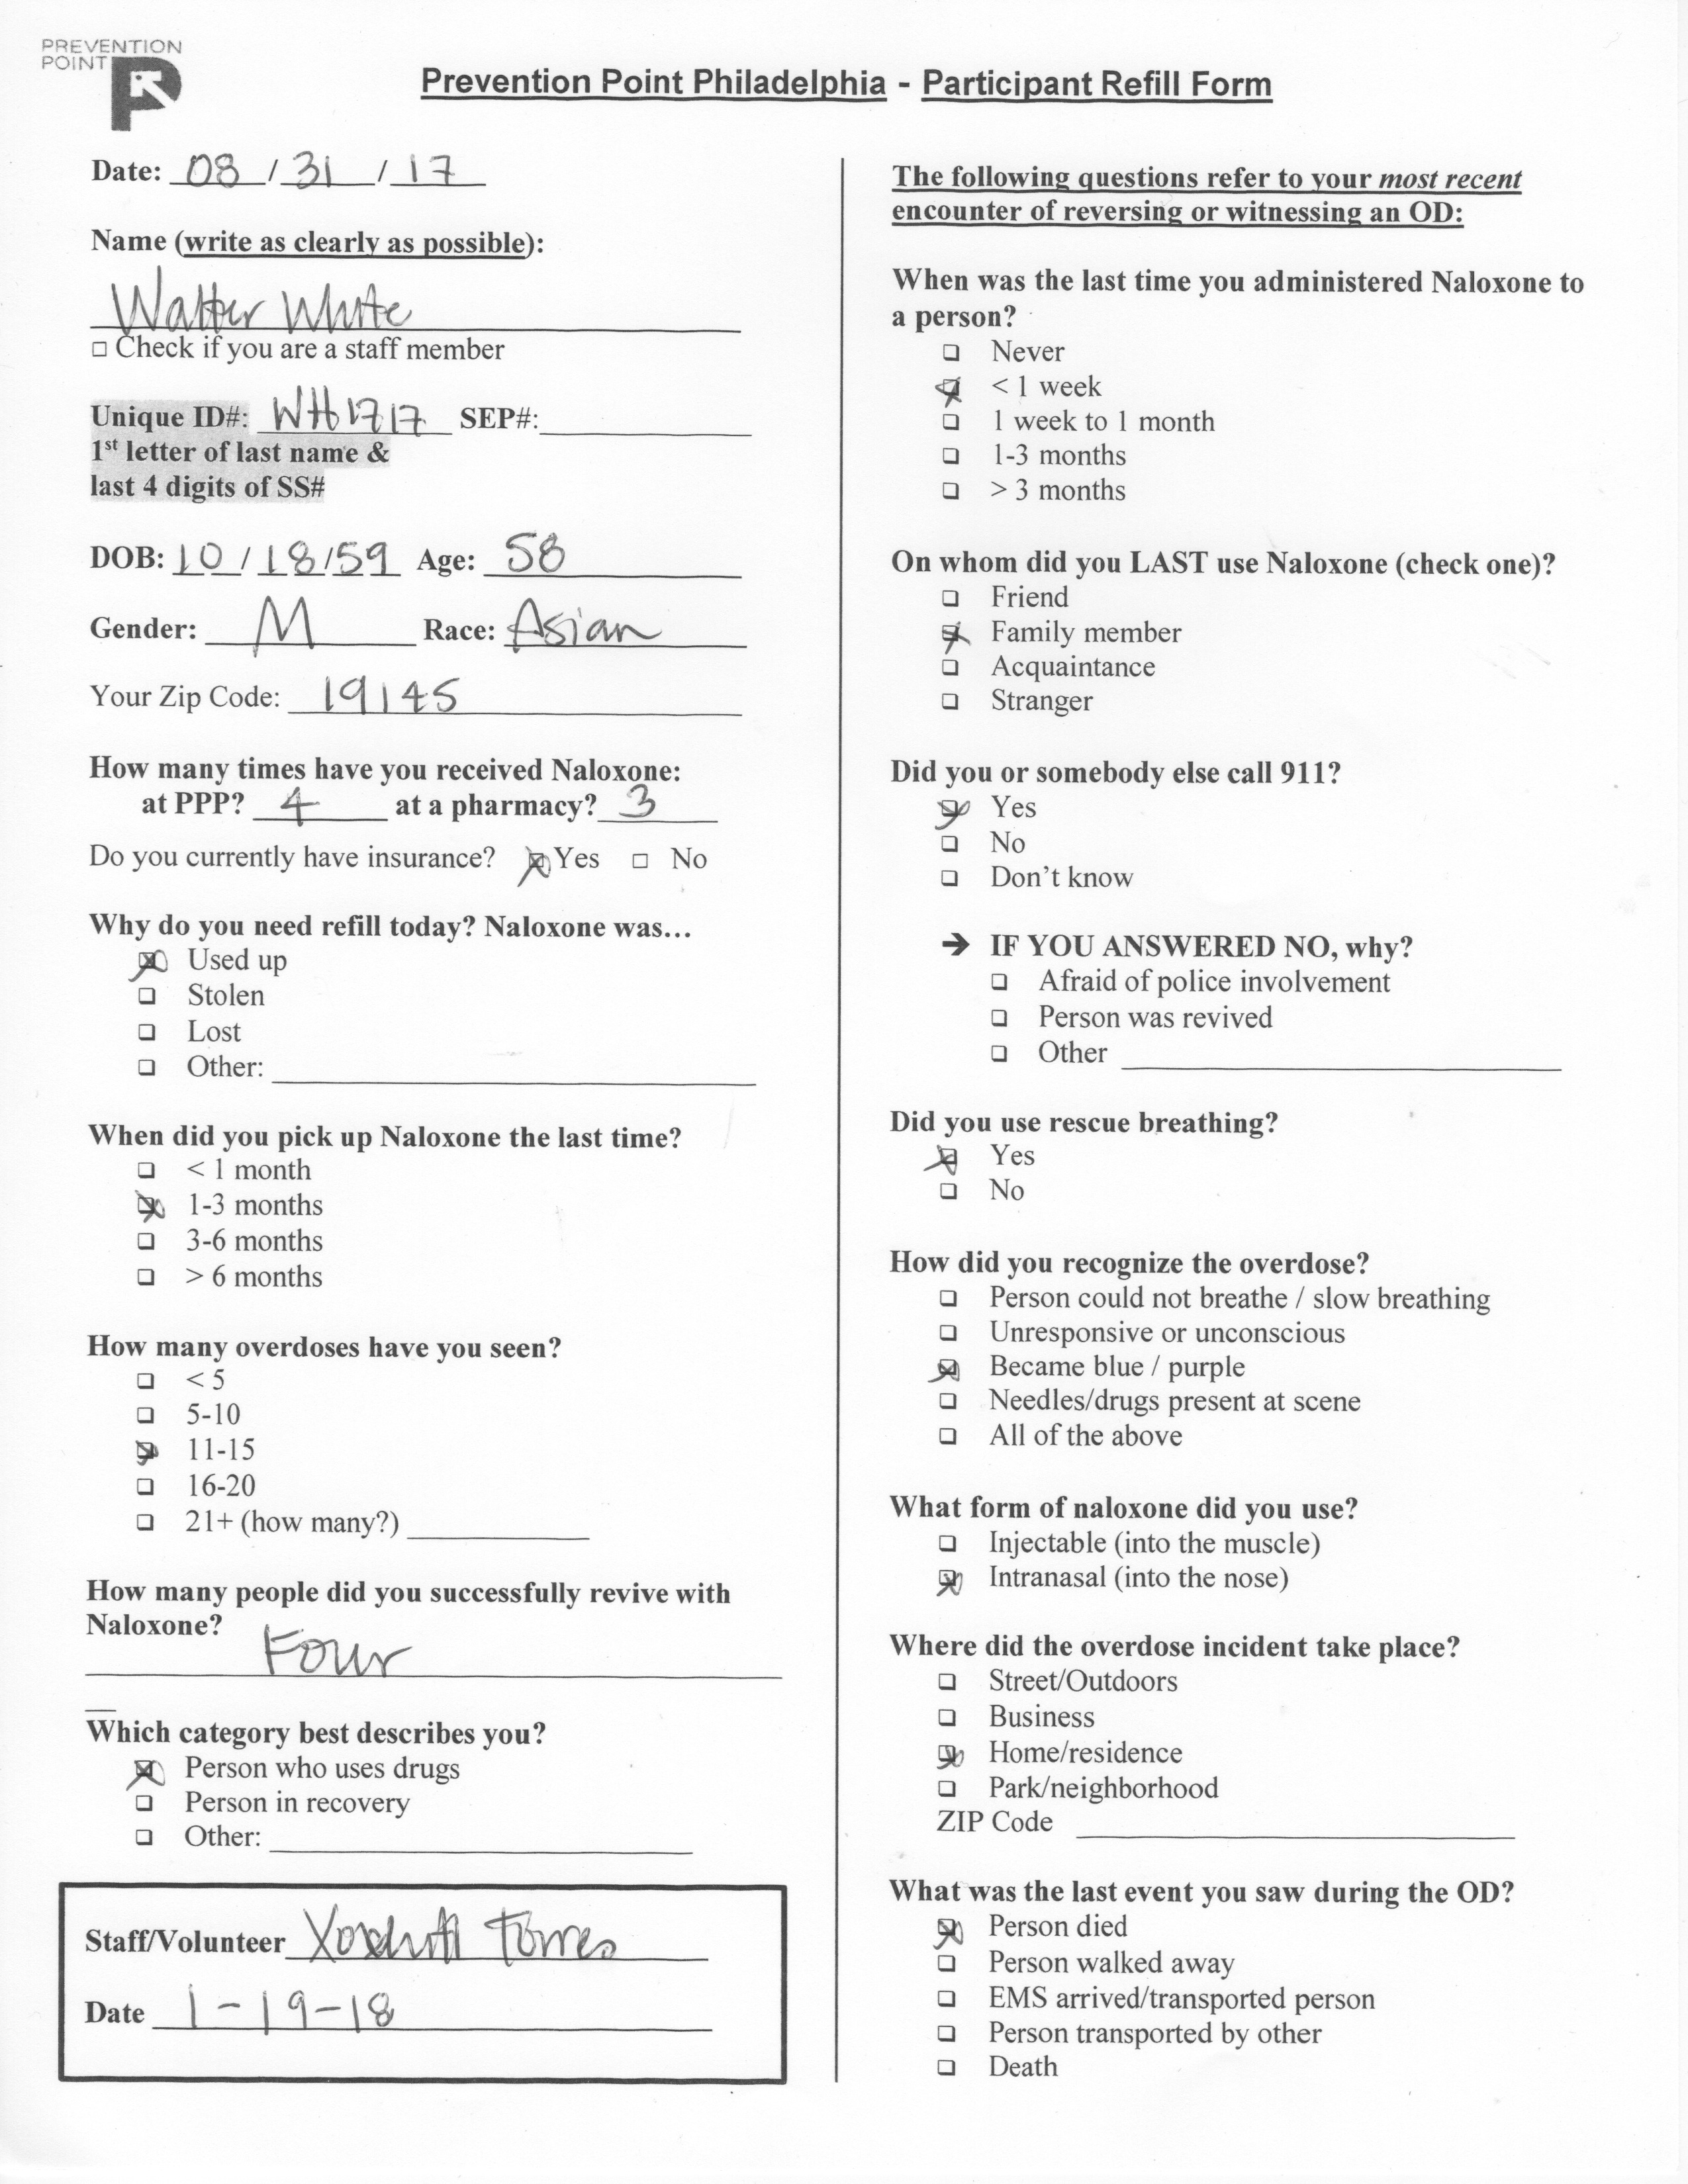 PREVENTION
POINT
Prevention Point Philadelphia - Participant Refill Form
Date: 08 / 31 / 17
Name (write as clearly as possible):
Walter White
☐ Check if you are a staff member
Unique ID#: WH1717 SEP#:
1st letter of last name &
last 4 digits of SS#
DOB: 10 / 18 / 59 Age: 58
Gender: M Race: Asian
Your Zip Code: 19145
How many times have you received Naloxone:
at PPP? 4 at a pharmacy? 3
Do you currently have insurance? ☒ Yes ☐ No
Why do you need refill today? Naloxone was...
☒ Used up
☐ Stolen
☐ Lost
☐ Other:
When did you pick up Naloxone the last time?
☐ < 1 month
☒ 1-3 months
☐ 3-6 months
☐ > 6 months
How many overdoses have you seen?
☐ < 5
☐ 5-10
☒ 11-15
☐ 16-20
☐ 21+ (how many?)
How many people did you successfully revive with
Naloxone?
Four
Which category best describes you?
☒ Person who uses drugs
☐ Person in recovery
☐ Other:
Staff/Volunteer Torres
Date 1-19-18
The following questions refer to your most recent
encounter of reversing or witnessing an OD:
When was the last time you administered Naloxone to
a person?
☐ Never
☒ < 1 week
☐ 1 week to 1 month
☐ 1-3 months
☐ > 3 months
On whom did you LAST use Naloxone (check one)?
☐ Friend
☒ Family member
☐ Acquaintance
☐ Stranger
Did you or somebody else call 911?
☒ Yes
☐ No
☐ Don't know
➔ IF YOU ANSWERED NO, why?
☐ Afraid of police involvement
☐ Person was revived
☐ Other
Did you use rescue breathing?
☒ Yes
☐ No
How did you recognize the overdose?
☐ Person could not breathe / slow breathing
☐ Unresponsive or unconscious
☒ Became blue / purple
☐ Needles/drugs present at scene
☐ All of the above
What form of naloxone did you use?
☐ Injectable (into the muscle)
☒ Intranasal (into the nose)
Where did the overdose incident take place?
☐ Street/Outdoors
☐ Business
☒ Home/residence
☐ Park/neighborhood
ZIP Code
What was the last event you saw during the OD?
☒ Person died
☐ Person walked away
☐ EMS arrived/transported person
☐ Person transported by other
☐ Death